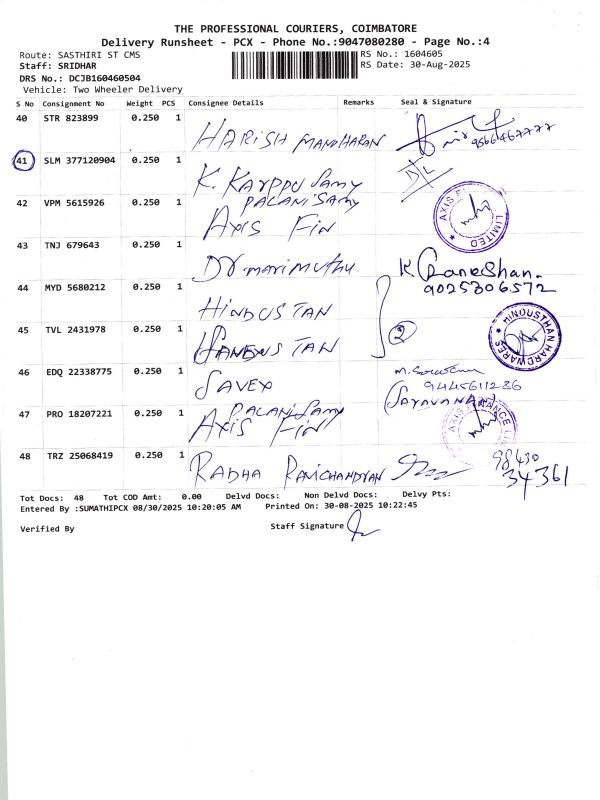 THE PROFESSIONAL COURIERS, COIMBATORE
Delivery Runsheet - PCX - Phone No.:9047080280 - Page No.:4
Route: SASTHIRI ST CMS
RS No.: 1604605
Staff: SRIDHAR
RS Date: 30-Aug-2025
DRS No.: DCJB160460504
Vehicle: Two Wheeler Delivery
S No Consignment No Weight PCS Consignee Details Remarks Seal & Signature
40 STR 823899 0.250 1 HARISH MANOHARAN 9566467777
41 SLM 377120904 0.250 1 K. KARPPUSamy D/L
42 VPM 5615926 0.250 1 PALANISamy
AXIS FIN AXIS LIMITED
43 TNJ 679643 0.250 1 DR. marimuthu K
9025306572
44 MYD 5680212 0.250 1 HINDUSTAN
45 TVL 2431978 0.250 1 TAN 2 HINDUSTHAN HARDWARES
46 EDQ 22338775 0.250 1 SAVEX M.
9445611286
47 PRO 18207221 0.250 1 PALANISamy
AXIS FIN AXIS
48 TRZ 25068419 0.250 1 RADHA RAVICHANDRAN 98430
34361
Tot Docs: 48 Tot COD Amt: 0.00 Delvd Docs: Non Delvd Docs: Delvy Pts:
Entered By :SUMATHIPCX 08/30/2025 10:20:05 AM Printed On: 30-08-2025 10:22:45
Verified By Staff Signature